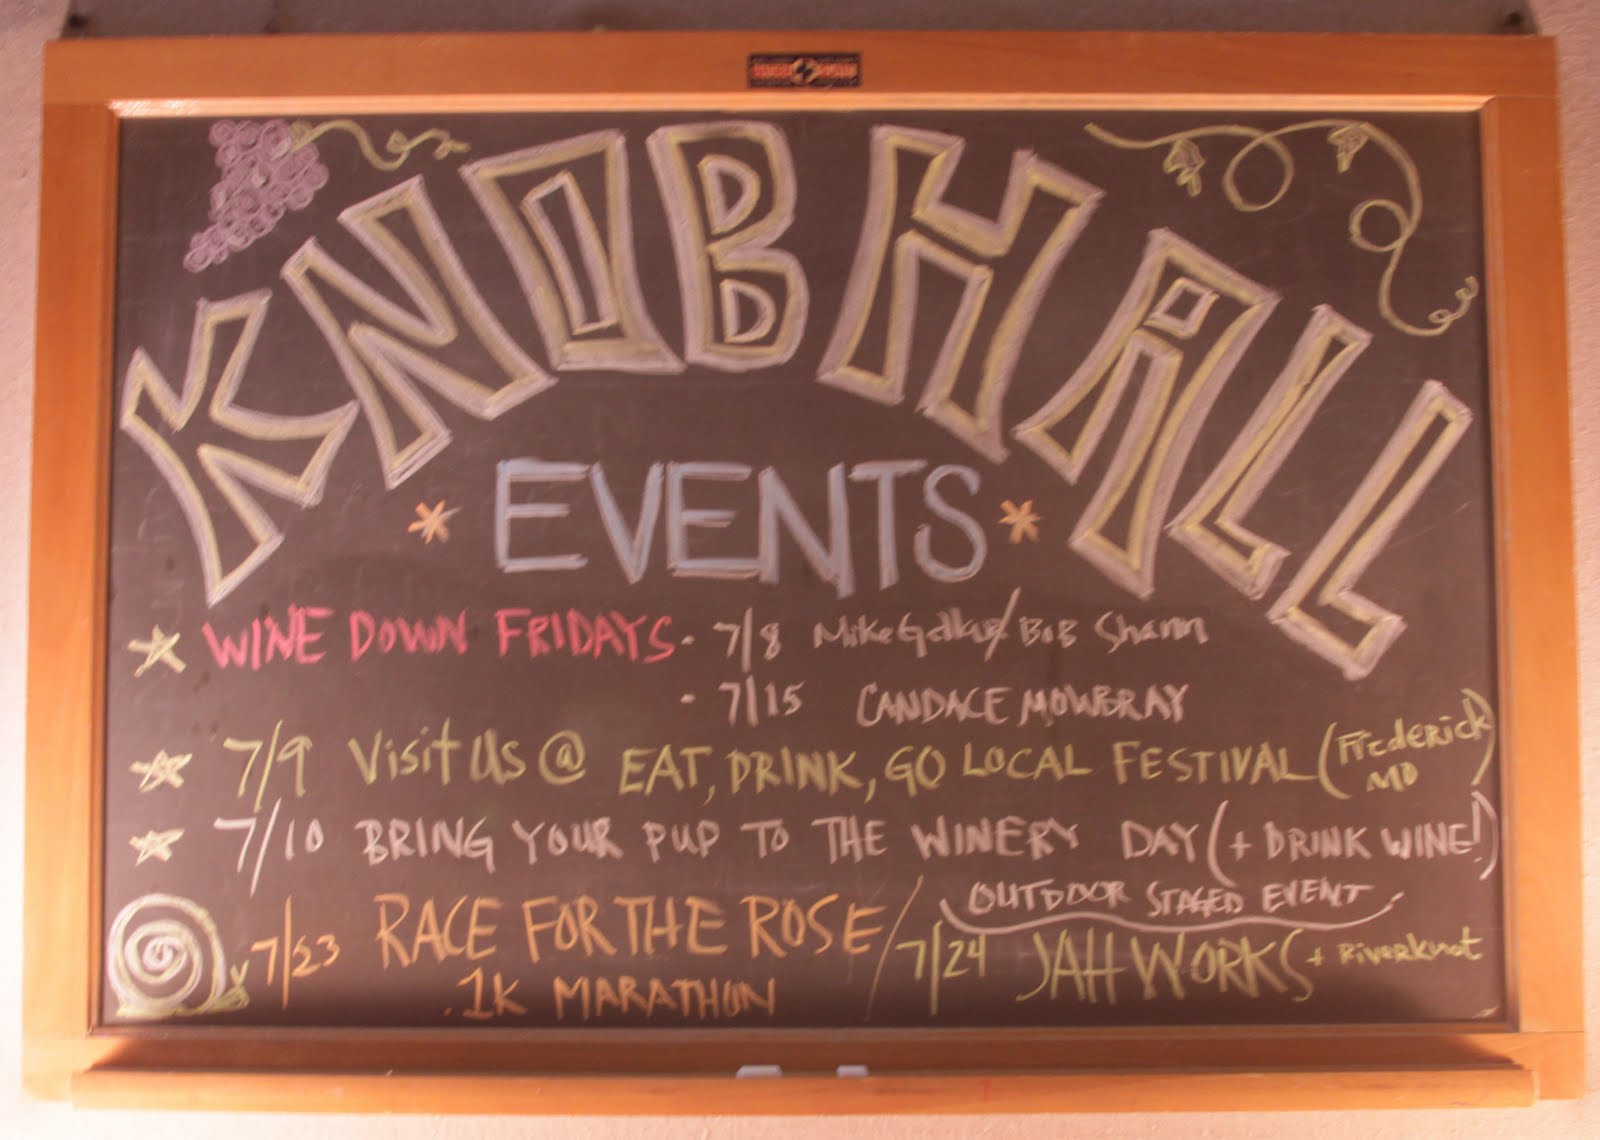 KNOB HALL
* EVENTS *
WINE DOWN FRIDAYS - 7/8 Mike / BOB Sharin
- 7/15 CANDACE MOWBRAY
7/9 Visit Us @ EAT, DRINK, GO LOCAL FESTIVAL (Frederick MD)
7/10 BRING YOUR PUP TO THE WINERY DAY (+ DRINK WINE!)
7/23 RACE FOR THE ROSE /
.1K MARATHON
OUTDOOR STAGED EVENT
7/24 JAH WORKS + Riverknot